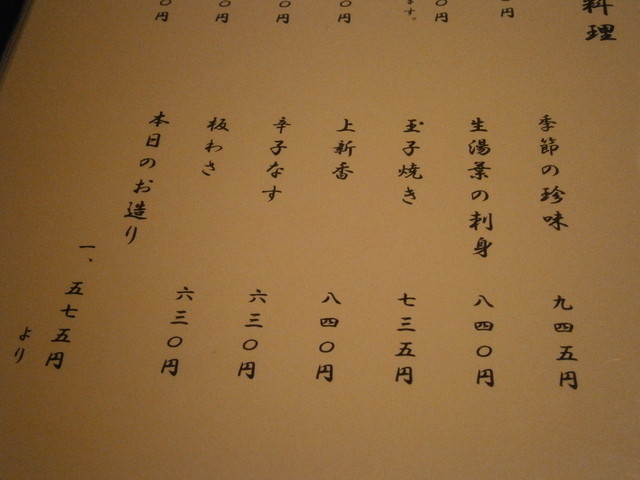 料理
〇円
〇円
ます。
〇円
〇円
〇円
〇円
季節の珍味 九四五円
生湯葉の刺身 八四〇円
玉子焼き 七三五円
上新香 八四〇円
辛子なす 六三〇円
板わさ 六三〇円
本日のお造り
一、五七五円
より